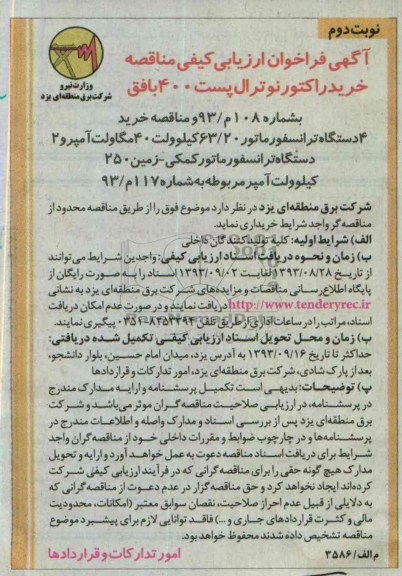 نوبت دوم
آگهی فراخوان ارزیابی کیفی مناقصه
خرید راکتور نوترال پست ۴۰۰ بافق
وزارت نیرو
شرکت برق منطقه‌ای یزد
بشماره ۱۰۸م/۹۳ و مناقصه خرید
۴ دستگاه ترانسفورماتور ۶۳/۲۰ کیلوولت ۴۰ مگاولت آمپر و ۲
دستگاه ترانسفورماتور کمکی-زمین ۲۵۰
کیلوولت آمپر مربوطه به شماره ۱۱۷م/۹۳
شرکت برق منطقه‌ای یزد در نظر دارد موضوع فوق را از طریق مناقصه محدود از
مناقصه‌گر واجد شرایط خریداری نماید.
الف) شرایط اولیه: کلیه تولیدکنندگان داخلی
ب) زمان و نحوه دریافت اسناد ارزیابی کیفی: واجدین شرایط می‌توانند
از تاریخ ۱۳۹۳/۰۸/۲۸ لغایت ۱۳۹۳/۰۹/۰۲ اسناد را به صورت رایگان از
پایگاه اطلاع‌رسانی مناقصات و مزایده‌های شرکت برق منطقه‌ای یزد به نشانی
http://www.tenderyrec.ir دریافت نمایند و در صورت عدم امکان دریافت
اسناد، مراتب را در ساعات اداری از طریق تلفن پیگیری نمایند.
ب) زمان و محل تحویل اسناد ارزیابی کیفی تکمیل شده دریافتی:
حداکثر تا تاریخ ۱۳۹۳/۰۹/۱۶ به آدرس یزد، میدان امام حسین، بلوار دانشجو،
بعد از پارک شادی، شرکت برق منطقه‌ای یزد، امور تدارکات و قراردادها
پ) توضیحات: بدیهی است تکمیل پرسشنامه و ارایه مدارک مندرج
در پرسشنامه، در ارزیابی صلاحیت مناقصه‌گران موثر می‌باشد و شرکت
برق منطقه‌ای یزد پس از بررسی اسناد و مدارک واصله و اطلاعات مندرج در
پرسشنامه‌ها و در چارچوب ضوابط و مقررات داخلی خود از مناقصه‌گران واجد
شرایط برای دریافت اسناد مناقصه دعوت به عمل خواهد آورد و ارایه و تحویل
مدارک هیچ گونه حقی را برای مناقصه‌گرانی که در فرآیند ارزیابی کیفی شرکت
کرده‌اند ایجاد نخواهد کرد و حق مناقصه‌گزار در عدم دعوت از مناقصه‌گرانی که
به دلایلی از قبیل عدم احراز صلاحیت، نقصان سوابق معتبر (امکانات، محدودیت
مالی و کثرت قراردادهای جاری و ...) فاقد توانایی لازم برای پیشبرد موضوع
مناقصه تشخیص داده شدند محفوظ خواهد بود.
م الف/۳۵۸۶
امور تدارکات و قراردادها